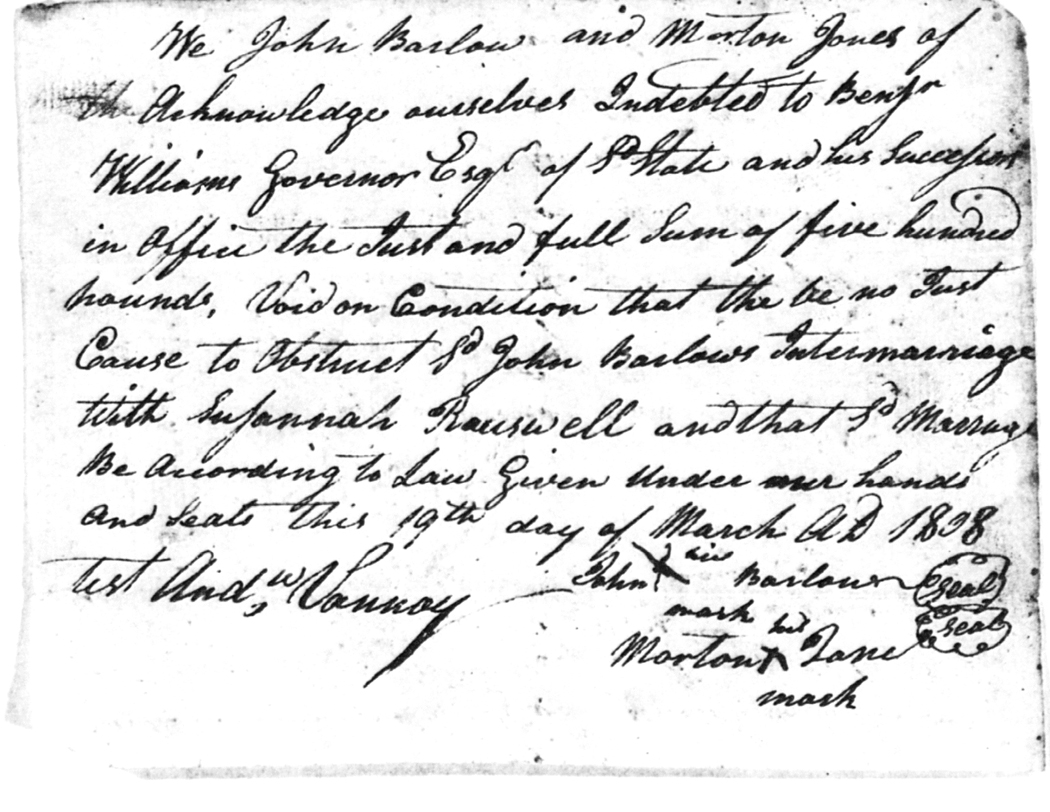 We John Barlow and Morton Jones of
Acknowledge ourselves Indebted to Benjn
Williams Governor Esqr of Sd State and his Successors
in Office the Just and full Sum of five hundred
pounds, Void on Condition that the be no Just
Cause to Obstruct Sd John Barlows Intermarriage
With Susannah Rauswell and that Sd Marriage
Be According to Law Given Under our hands
And Seals this 19th day of March AD 1808
test Andw Vannoy John X his Barlow seal
mark his
Morton X Jane seal
mark